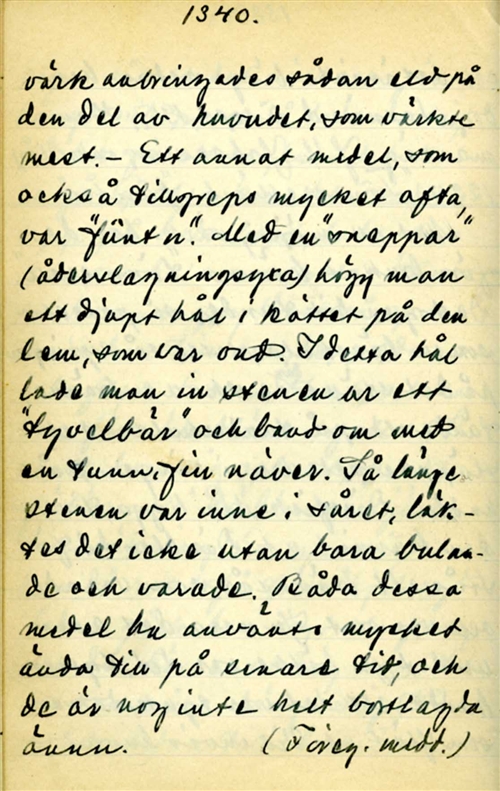 1340.
värk anbringades sådan eld på
den del av huvudet, som värkte
mest. – Ett annat medel, som
också tillgreps mycket ofta,
var "füntn". Med en "sneppar"
(åderslagningsyxa) högg man
ett djupt hål i köttet på den
lem, som var ond. I detta hål
lade man in stenen ur ett
"tyvelbär" och band om med
en tunn, fin näver. Så länge
stenen var inne i såret, läk-
tes det icke utan bara bulna-
de och varade. Båda dessa
medel ha använts mycket
ända till på senare tid, och
de är nog inte helt bortlagda
ännu. (Föreg. medd.)